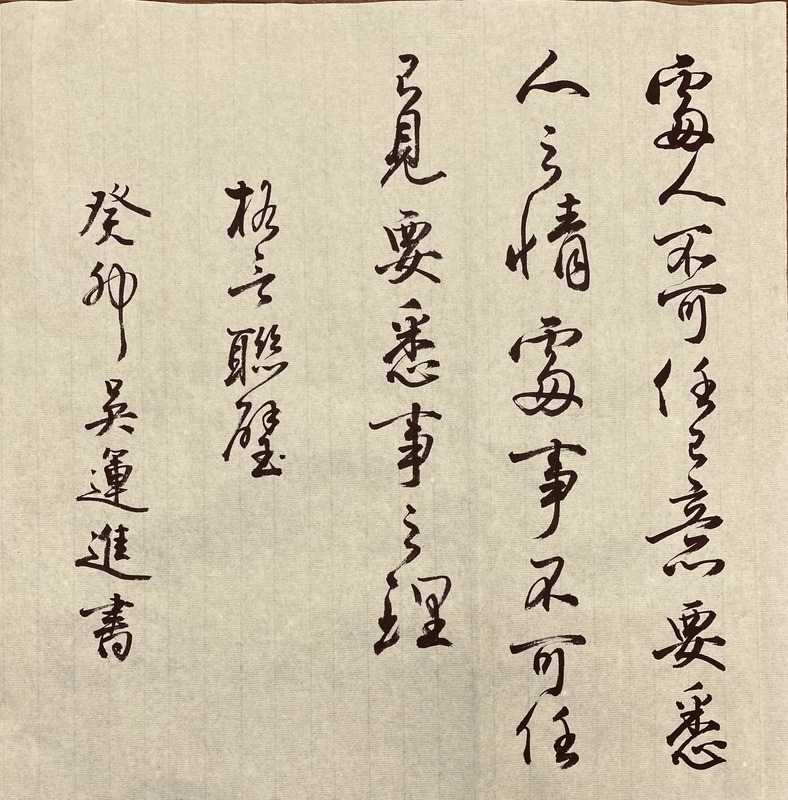 處人不可任己意要悉
人之情處事不可任
己見要悉事之理
格言聯璧
癸卯吳運進書